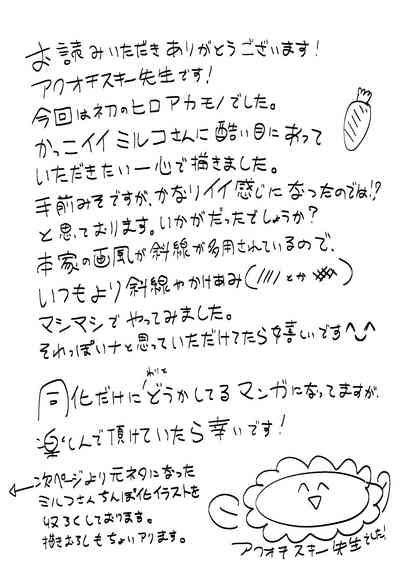 お読みいただきありがとうございます!
アクオチスキー先生です!
今回は初のヒロアカモノでした。
かっこイイミルコさんに酷い目にあって
いただきたい一心で描きました。
手前みそですが、かなりイイ感じになったのでは!?
と思っております。いかがだったでしょうか?
本家の画風が斜線が多用されているので、
いつもより斜線やかけあみ(//// とか )
マシマシでやってみました。
それっぽいナと思っていただけてたら嬉しいです
わりと
同化だけにどうかしてるマンガになってますが、
楽しんで頂けていたら幸いです!
←次ページより元ネタになった
ミルコさんちんぽ化イラストを
収ろくしております。
描きおろしもちょいアリます。
アクオチスキー先生でした!